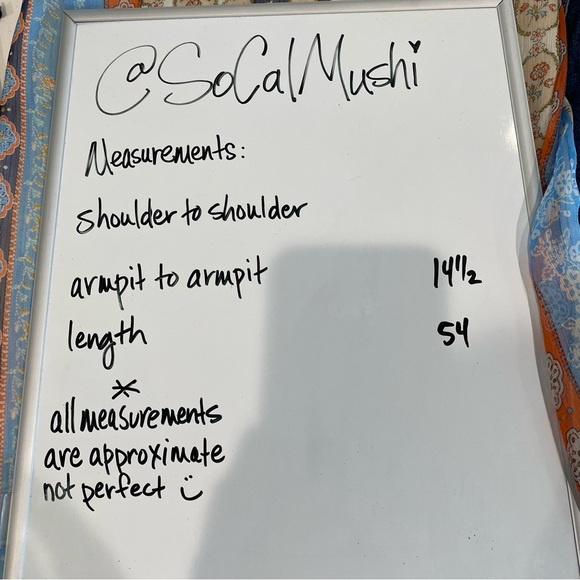 @SoCalMushi
Measurements:
shoulder to shoulder
armpit to armpit 14 1/2
length 54
*
all measurements
are approximate
not perfect :)